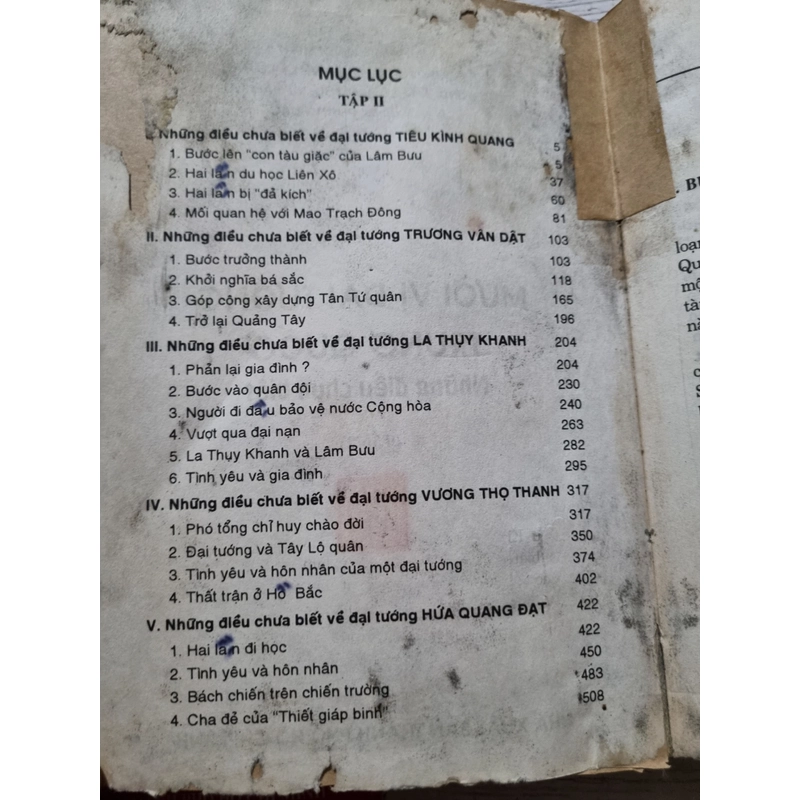 MỤC LỤC
TẬP II
I. Những điều chưa biết về đại tướng TIÊU KÌNH QUANG 5
1. Bước lên "con tàu giặc" của Lâm Bưu 5
2. Hai lần du học Liên Xô 37
3. Hai lần bị "đả kích" 60
4. Mối quan hệ với Mao Trạch Đông 81
II. Những điều chưa biết về đại tướng TRƯƠNG VÂN DẬT 103
1. Bước trưởng thành 103
2. Khởi nghĩa bá sắc 118
3. Góp công xây dựng Tân Tứ quân 165
4. Trở lại Quảng Tây 196
III. Những điều chưa biết về đại tướng LA THỤY KHANH 204
1. Phản lại gia đình ? 204
2. Bước vào quân đội 230
3. Người đi đầu bảo vệ nước Cộng hòa 240
4. Vượt qua đại nạn 263
5. La Thụy Khanh và Lâm Bưu 282
6. Tình yêu và gia đình 295
IV. Những điều chưa biết về đại tướng VƯƠNG THỌ THANH 317
1. Phó tổng chỉ huy chào đời 317
2. Đại tướng và Tây Lộ quân 350
3. Tình yêu và hôn nhân của một đại tướng 374
4. Thất trận ở Hồ Bắc 402
V. Những điều chưa biết về đại tướng HỨA QUANG ĐẠT 422
1. Hai lần đi học 422
2. Tình yêu và hôn nhân 450
3. Bách chiến trên chiến trường 483
4. Cha đẻ của "Thiết giáp binh" 508
loạn
Qu
mộ
tà